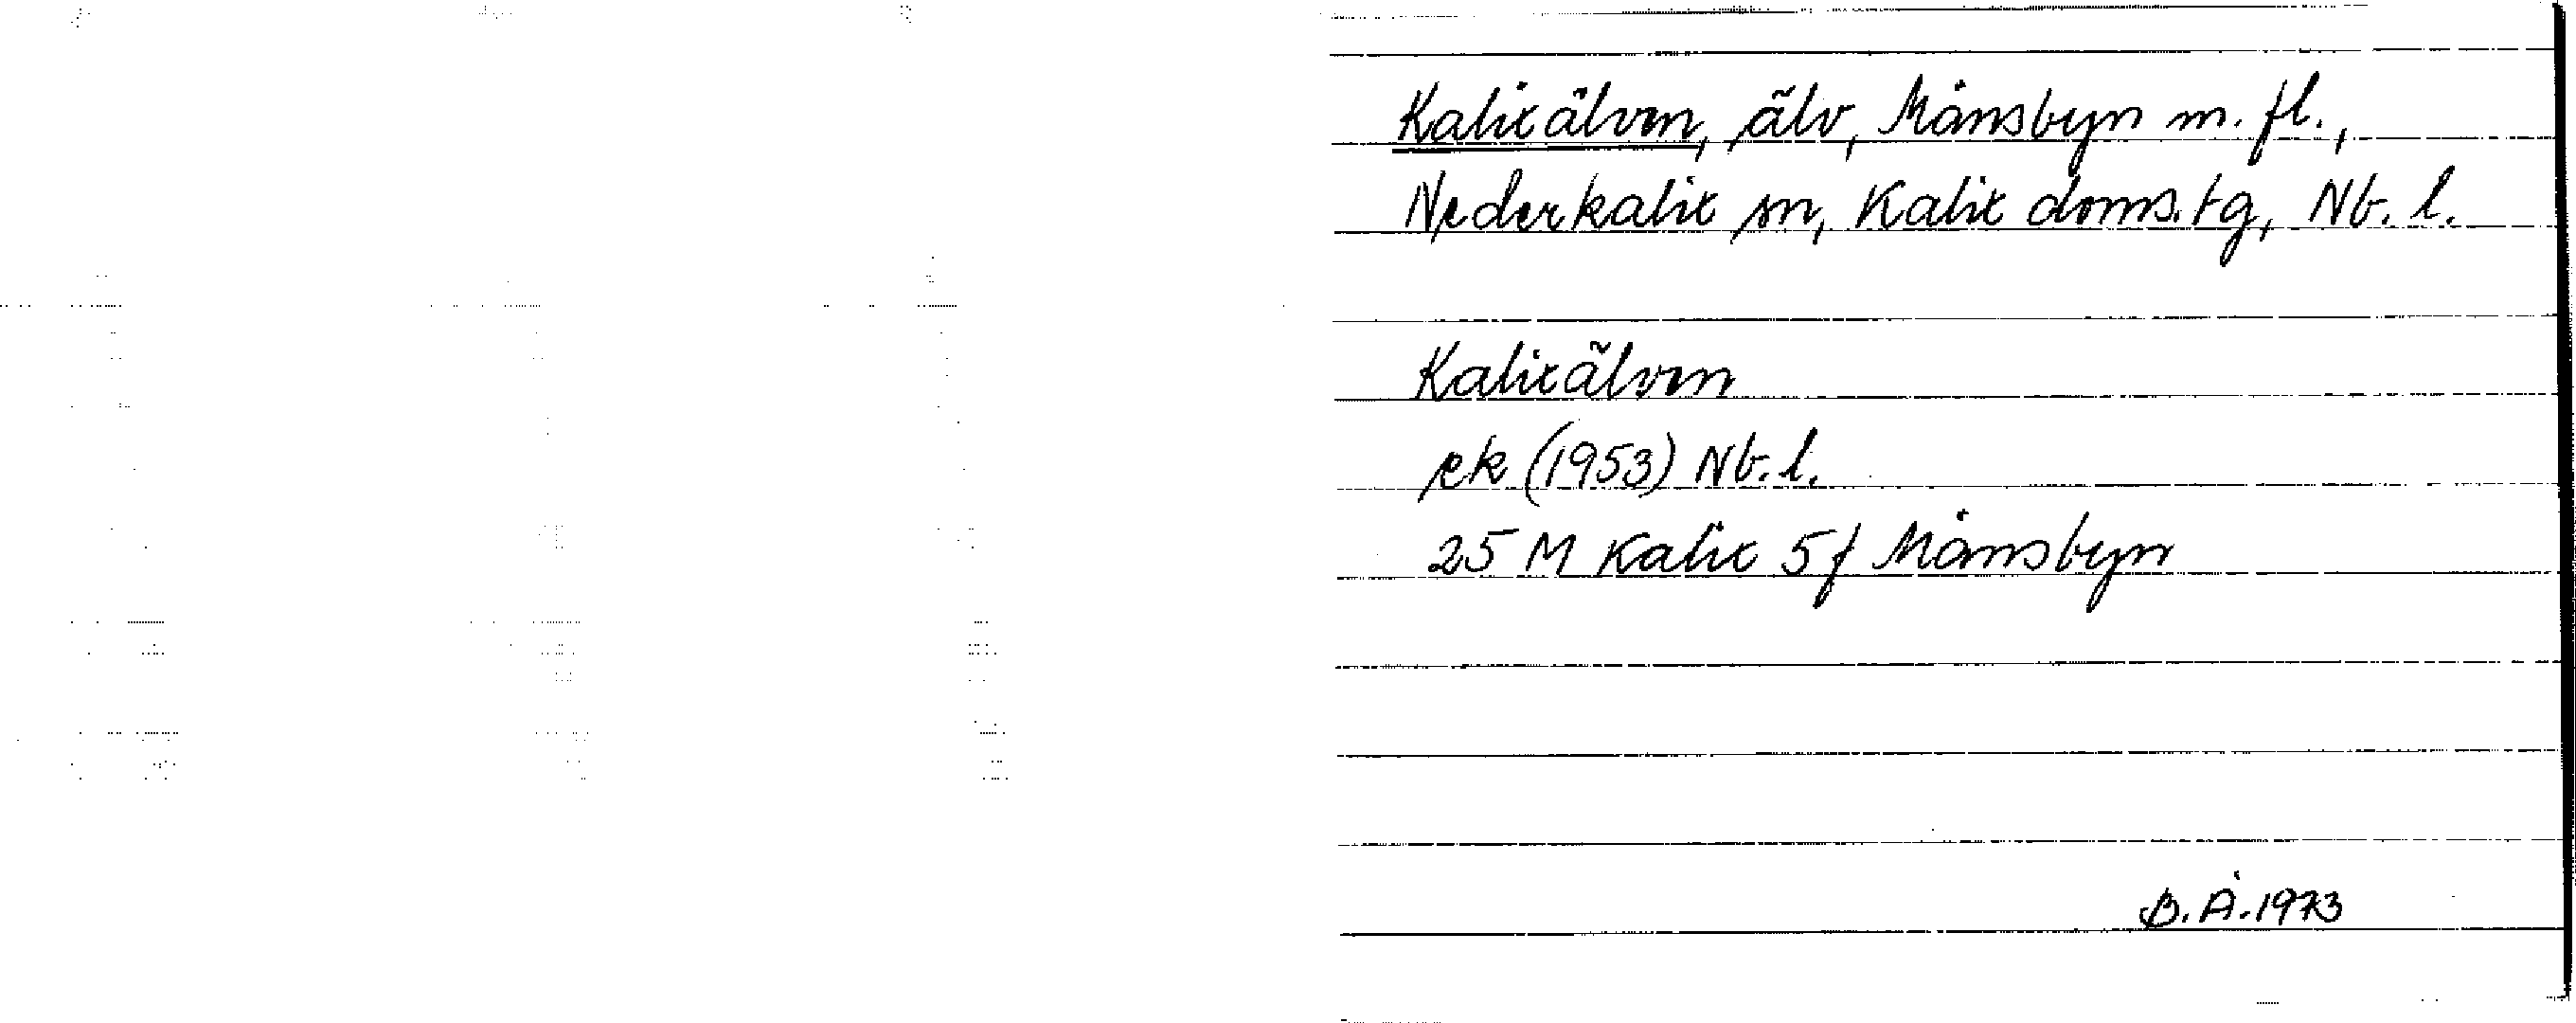 Kalixälven, älv, Månsbyn m. fl.,
Nederkalix sn, Kalix doms.tg, Nb. l.
Kalixälven
ek (1953) Nb. l.
25 M Kalix 5f Månsbyn
B. Å. 1973